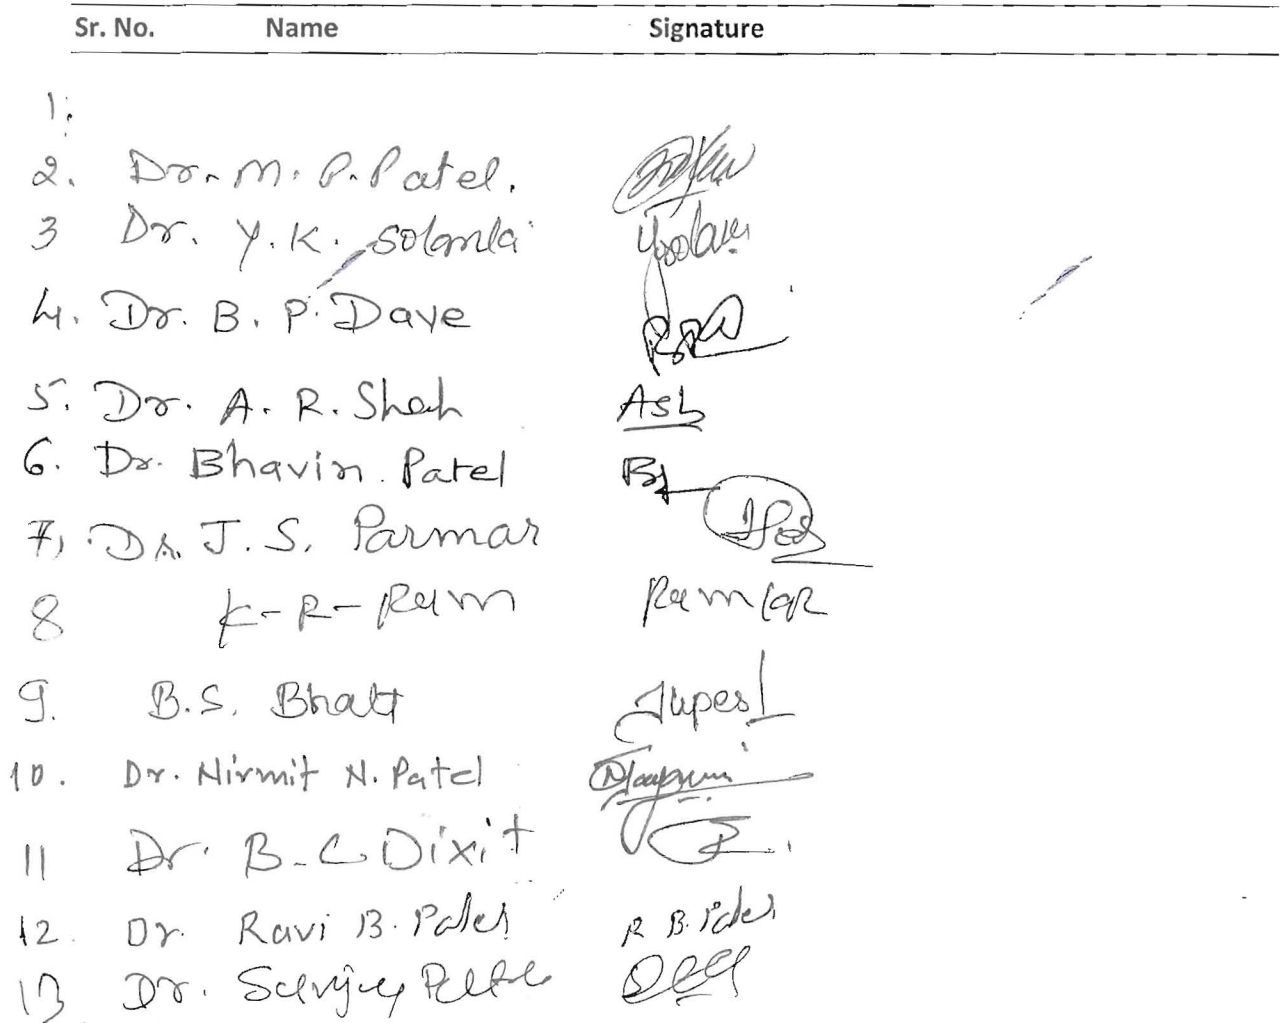 Sr. No. Name Signature
1.
2. Dr. M. P. Patel.
3 Dr. Y. K. Solanki
4. Dr. B. P. Dave
5. Dr. A. R. Shah Ash
6. Dr. Bhavin Patel
7, Dr. J. S. Parmar
8 K-R-
9. B.S. Bhatt
10. Dr. Nirmit N. Patel
11 Dr. B-C Dixit
12. Dr. Ravi B. Patel R B. Patel
13 Dr. Sanjay Patel